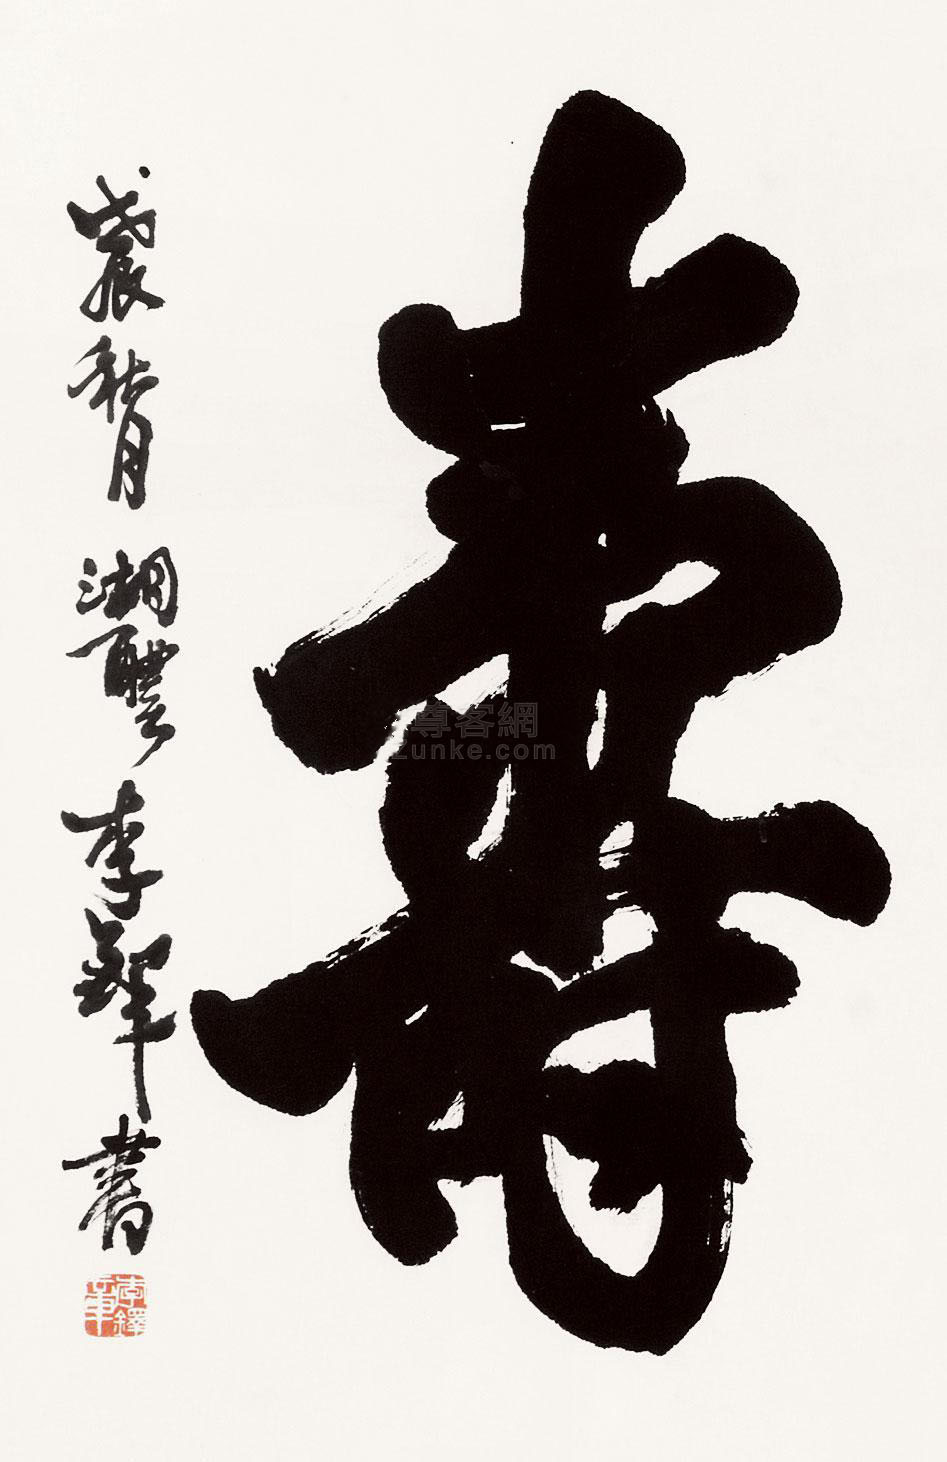 壽
戊辰秋月 湖醴 李鐸 書
李鐸
尊客網
Zunke.com